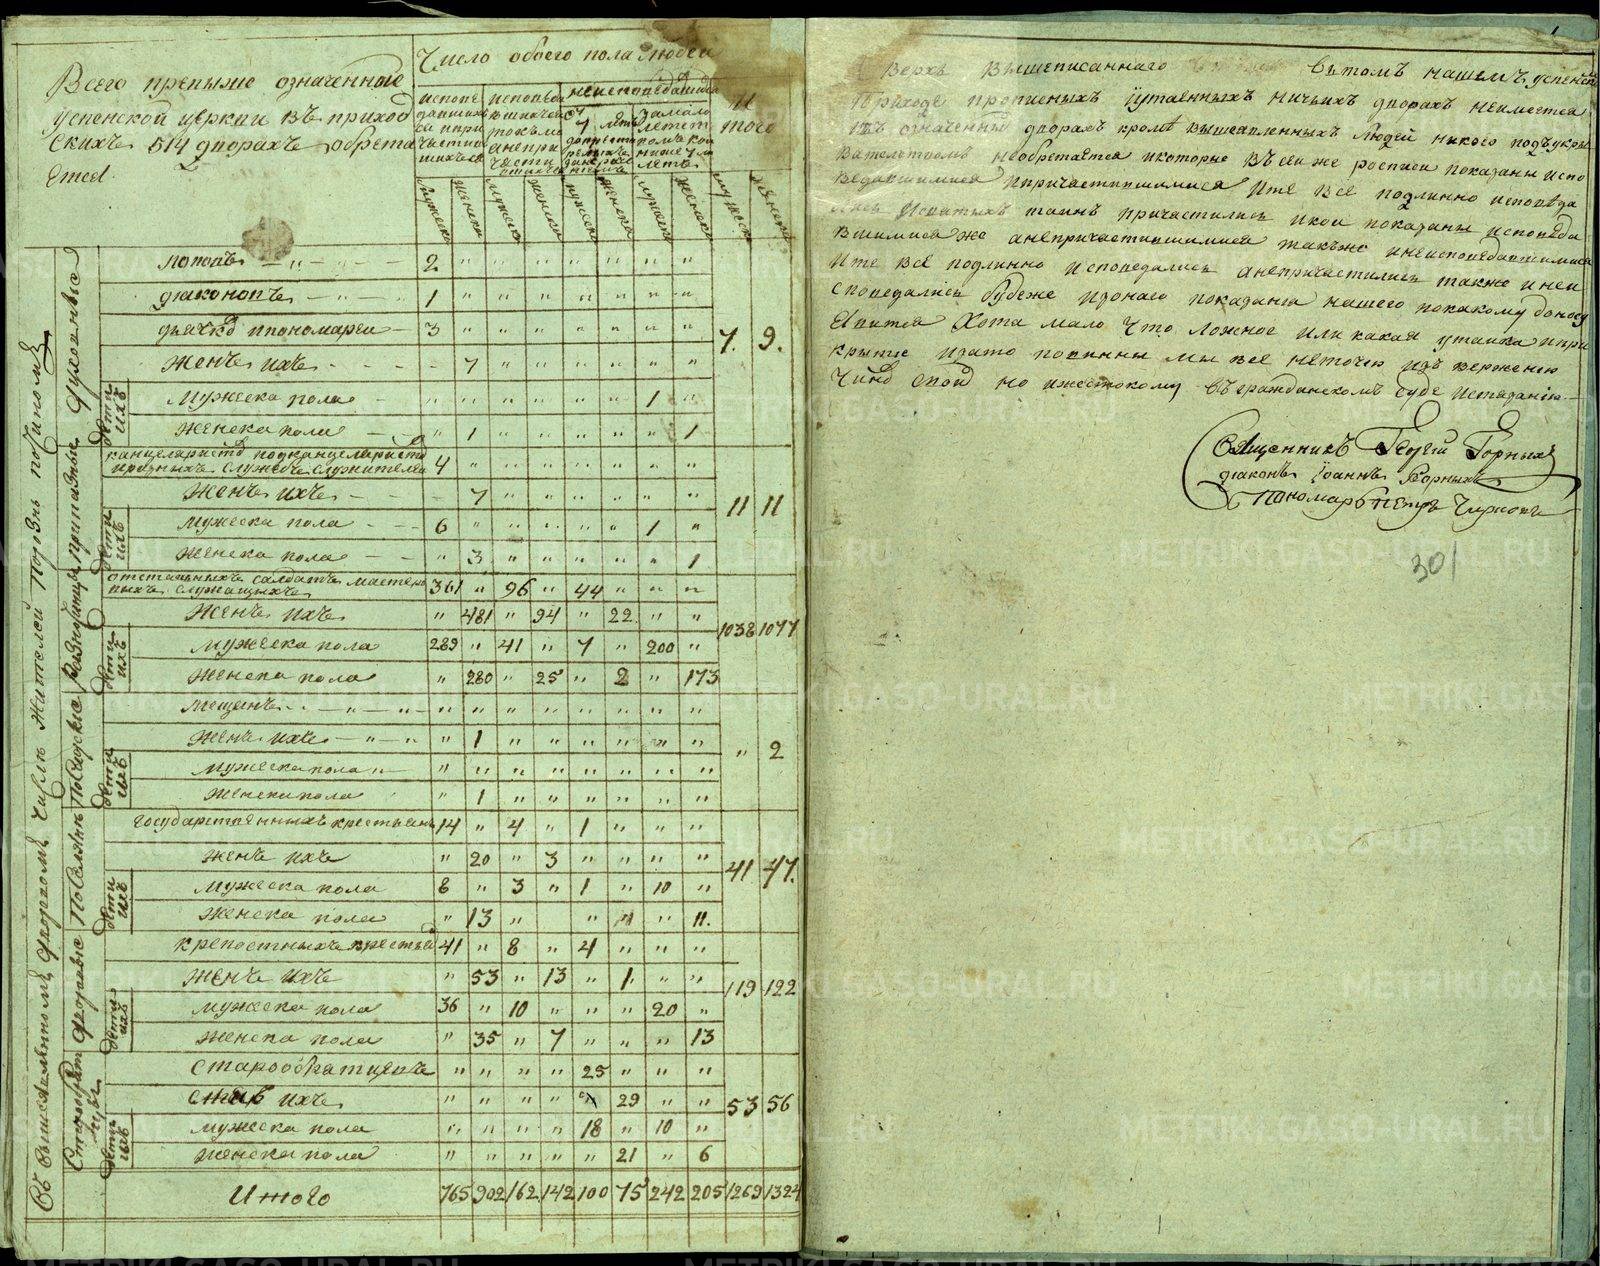 Всего превыше означенные
успенской церкви въ приход
скихъ 514 дворахъ обрета
Етсе
Число обоего пола людей
исповедавшихся и причастившихся
исповедавшихся токмо а непричастившихся
неисповедавшихся
Итого
Мужеска Женска Мужеска Женска Мужеска Женска Мужеска Женска мужеск женска
попопъ 2 " " " " " " "
диаконовъ 1 " " " " " " "
дьячков и пономарей 3 " " " " " " "
Женъ ихъ " 7 " " " " " "
7. 9.
Дети ихъ
Мужеска пола " " " " " " 1 "
Женска пола " 1 " " " " " 1
канцеляристов подканцеляристов
приазныхъ служебъ служителей 4 " " " " " " "
Женъ ихъ " 7 " " " " " "
11 11
Дети ихъ
мужеска пола 6 " " " " " 1 "
Женска пола " 3 " " " " " 1
отставныхъ салдатъ мастеро
выхъ служащихъ 361 " 96 " 44 " " "
Женъ ихъ " 481 " 94 " 22 " "
1038 1077
Дети ихъ
Мужеска пола 289 " 41 " 7 " 200 "
Женска пола " 280 " 25 " 2 " 173
мещанъ " " " " " " " "
Женъ ихъ " 1 " " " " " "
" 2
Дети ихъ
Мужеска пола " " " " " " " "
Женска пола " 1 " " " " " "
государственныхъ крестьянъ 14 " 4 " 1 " " "
Женъ ихъ " 20 " 3 " " " "
41 47.
Дети ихъ
Мужеска пола 8 " 3 " 1 " 10 "
Женска пола " 13 " " " 11.
крепостныхъ крестья 41 " 8 " 4 " " "
Женъ ихъ " 53 " 13 " 1 " "
119 122
Дети ихъ
мужеска пола 36 " 10 " " " 20 "
Женска пола " 35 " 7 " " " 13
старообрятцевъ " " " " 25 " " "
ихъ " " " " 29 " "
53 56
Дети ихъ
мужеска пола " " " " 18 " 10 "
Женска пола " " " " " 21 " 6
Итого 765 902 162 142 100 75 242 205 1269 1324
Въ вышеявленномъ дворовомъ числъ жителей порознь по чиномъ
Духовные
Приказные
Разночинцы
Посадские
Поселянъ
Дворовые
Старообрятцы
Верхъ вышеписаннаго вътомъ нашемъ успенск
приходе прописныхъ иутаенныхъ ничьихъ дворахъ неимеетса
въ означенных дворахъ кроме вышеявленныхъ людей никого подъукры
вательствомъ необретается икоторые въсей же росписи показаны испо
ведавшимися ипричастившимися Ите все подлинно исповеда
лись Исвятыхъ таинъ причастились икои показаны исповеда
вшимися же анепричастившимися такъже инеисповедавшимися
Ите все подлинно исповедались анепричастились также инеи
споведались будеже ироnаго показания нашего покакому доносу
Явится Хотя мало что ложное или какая утайка ипри
крытие изато повинны мы все неточию изъ вержению
Чинов своих но ижестокому въгражданскомъ суде истязанию.
Священникъ Георгий Горныхъ
диаконъ Іоаннъ Горныхъ
Пономарь Петръ Чирковъ
301
METRIKI.GASO-URAL.RU